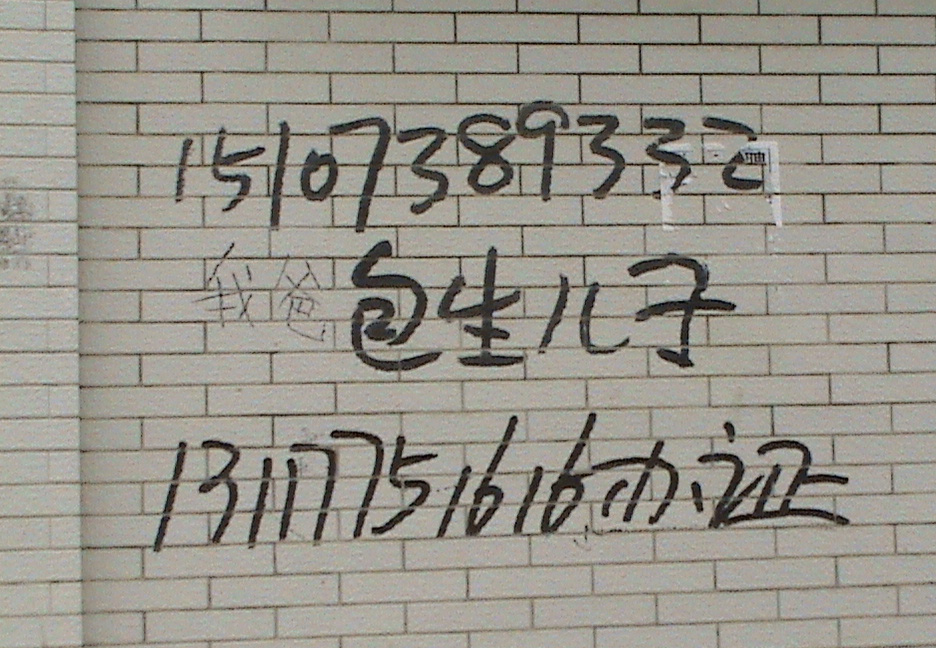 15107389332
我爸包生儿子
13117751616办证